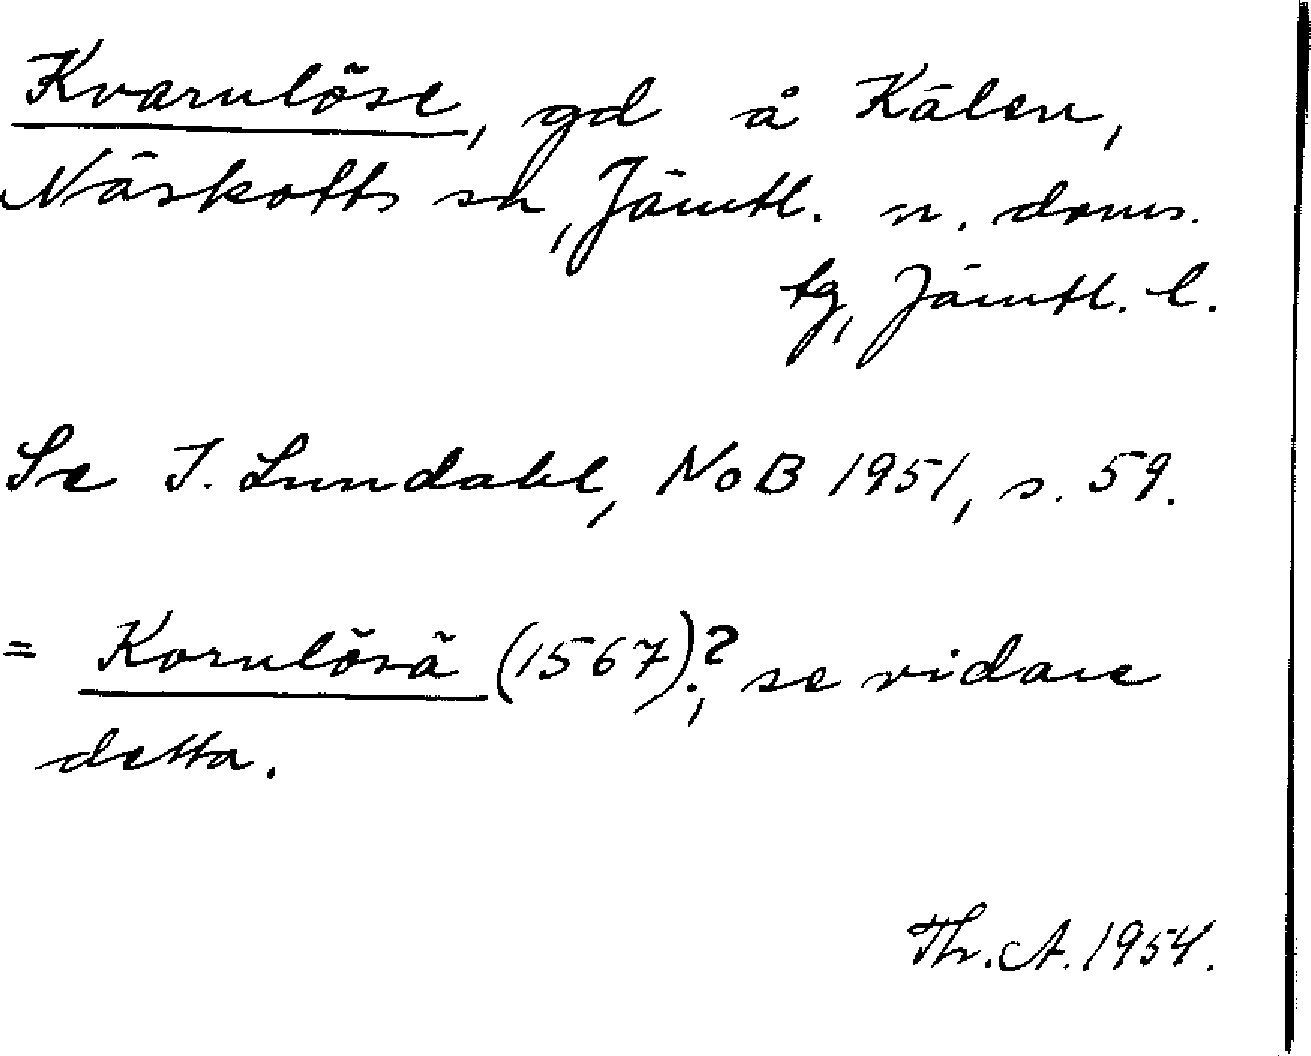 Kvarnlöse, gd å Kälen,
Näskotts sn, Jämtl. n. doms.
tg, Jämtl. l.
Se I. Lundahl, NoB 1951, s. 59.
= Kornlösä (1567)?, se vidare
detta.
Th. A. 1954.